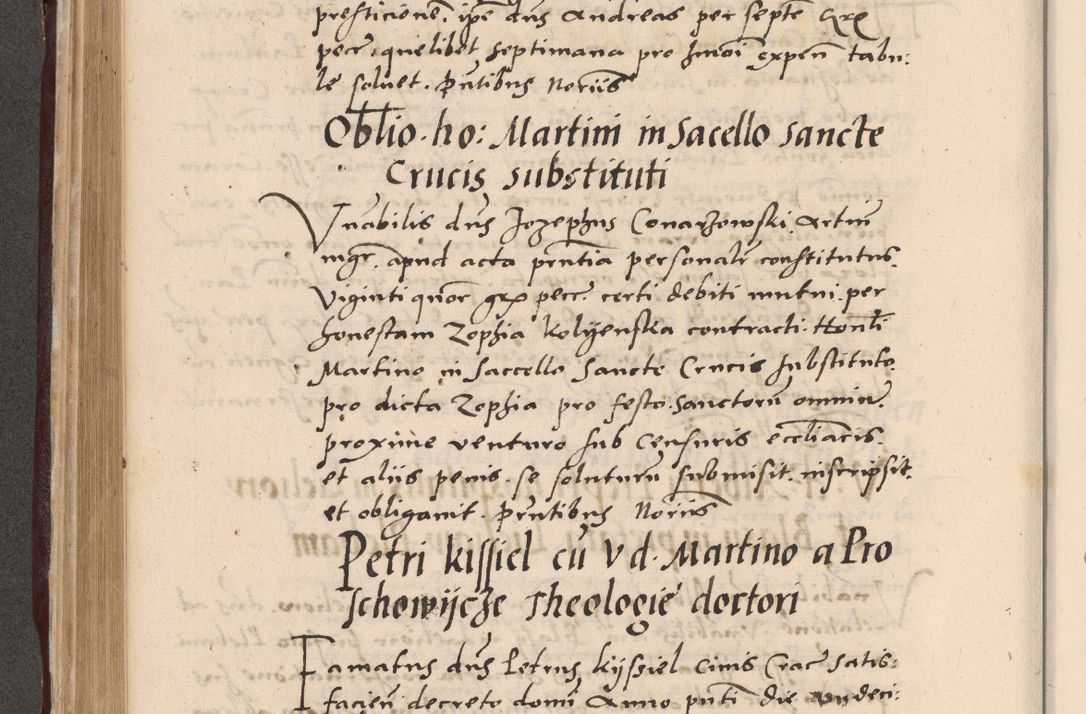 prefticionem. ipse dns Andreas per septe grx
pecc. quelibet septimana pro hmoi expen tabu:
le soluet. Pntibus Noriis
Oblio. ho: Martini in Sacello sancte
Crucis substituti
Vnabilis dns Jozephus Conarzowski. Artium
mgr. apud acta pntia personalr constitutus.
Viginti quor grx pecc. certi debiti mutui. per
honestam Zophia Kolyenska contracti. Honli
Martino in Saccello Sancte Crucis substituto.
pro dicta Zophia pro festo. sanctoru omniu.
proxime venturo sub censuris eccliacis.
et aliis penis. se soluturu submisit. inscripsit.
et obligauit. Pntibus Noriis
Petri Kissiel cu V d. Martino a Pro
schowijcze Theologie doctori
Famatus dns Petrus Kijssiel Ciuis Crac satis:
facien decreto domi Anno pnti die vndeci: